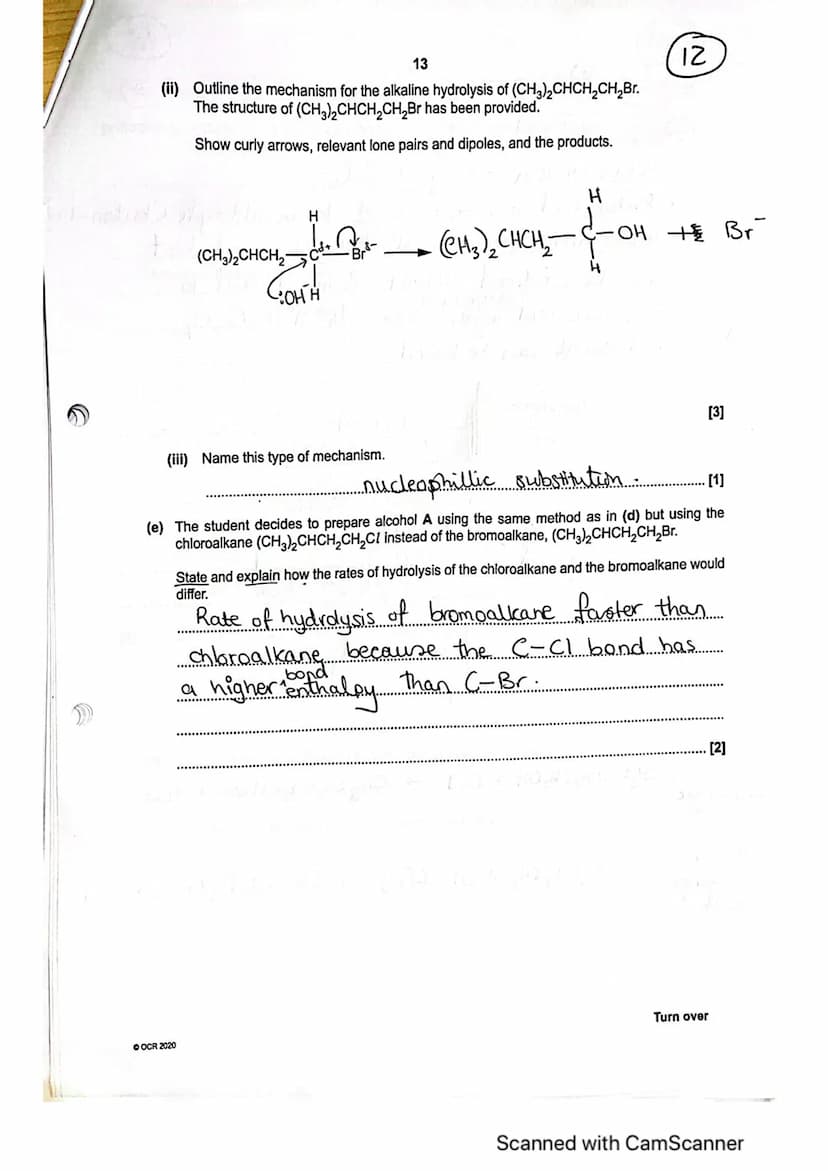 12
13
(ii) Outline the mechanism for the alkaline hydrolysis of (CH₃)₂CHCH₂CH₂Br.
The structure of (CH₃)₂CHCH₂CH₂Br has been provided.
Show curly arrows, relevant lone pairs and dipoles, and the products.
H H
(CH₃)₂CHCH₂—Cδ+—Brδ- → (CH₃)₂CHCH₂—C—OH + Br⁻
:OH⁻ H H
[3]
(iii) Name this type of mechanism.
nucleophillic substitution. [1]
(e) The student decides to prepare alcohol A using the same method as in (d) but using the
chloroalkane (CH₃)₂CHCH₂CH₂Cl instead of the bromoalkane, (CH₃)₂CHCH₂CH₂Br.
State and explain how the rates of hydrolysis of the chloroalkane and the bromoalkane would
differ.
Rate of hydrolysis of bromoalkane faster than
chloroalkane because the C-Cl bond has
a higher bond enthalpy than C-Br.
[2]
Turn over
© OCR 2020
Scanned with CamScanner